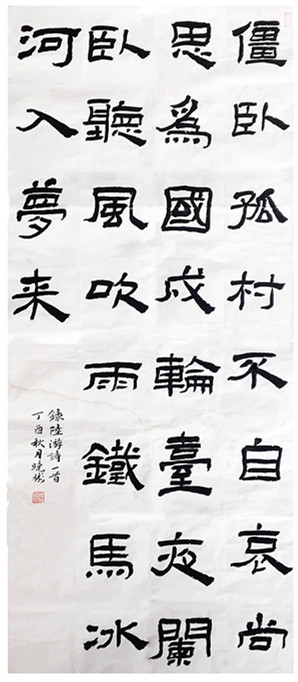 僵臥孤村不自哀尚
思爲國戍輪臺夜闌
臥聽風吹雨鐵馬冰
河入夢来
錄陸游詩一首
丁酉秋月